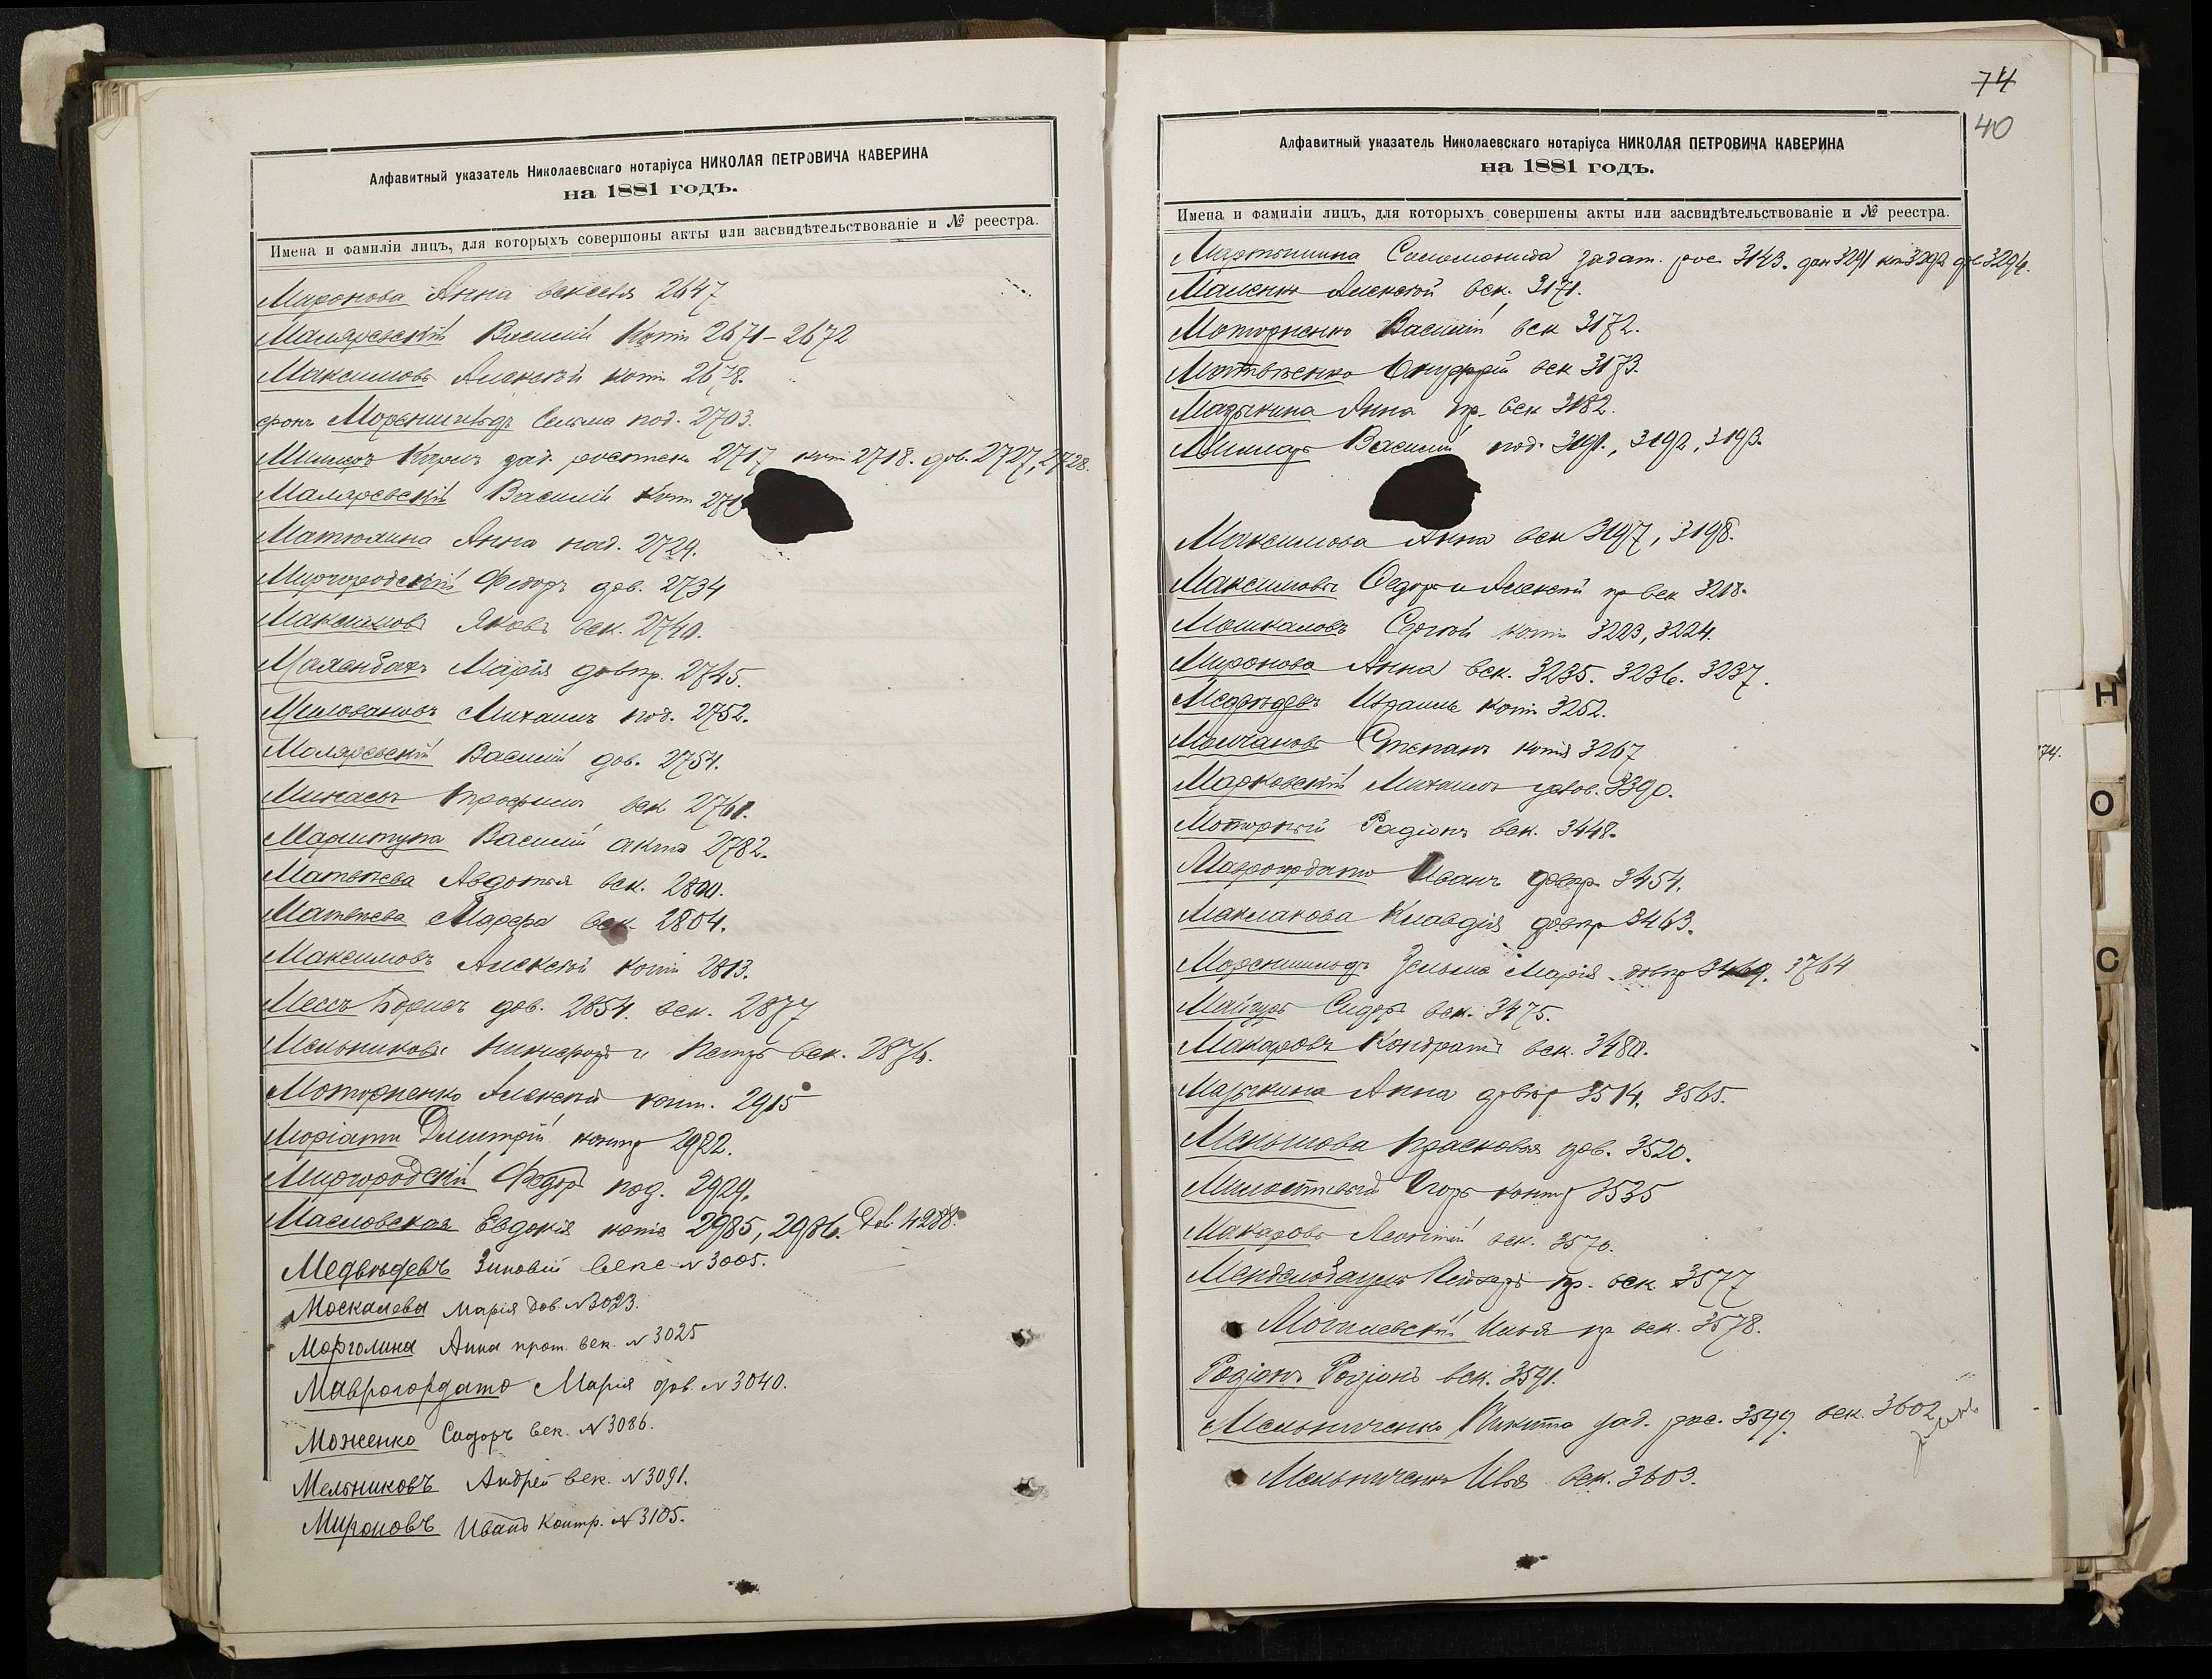 Алфавитный указатель Николаевскаго нотаріуса НИКОЛАЯ ПЕТРОВИЧА КАВЕРИНА
на 1881 годъ.
Имена и фамиліи лицъ, для которыхъ совершоны акты или засвидѣтельствованіе и № реестра.
Миронова Анна векселя 2647
Маляревскій Василій Копіи 2671-2672
Максимовъ Алексѣй копіи 2678.
фонъ Мореншильдъ Сельма под. 2703.
зад. росписка 2717 копіи 2718. дов. 2727, 2728.
Маляревскій Василій Копі
Матюхина Анна под. 2729.
Миргородскій Федоръ дов. 2734
Максимовъ Яковъ век. 2740.
Марія довѣр. 2745.
Миловановъ Михаилъ под. 2752.
Маляревскій Василій дов. 2754.
Трофимъ век 2761.
Василій актъ 2782.
Матвѣева Авдотья век. 2800.
Матвѣева Марфа век. 2804.
Максимовъ Алексѣй копіи 2813.
Мессъ Борисъ дов. 2854. век. 2877
Мельниковы Никифоръ и Петръ век. 2876.
Моторненко Алексѣй конт. 2915
Моріати Дмитрій контр 2922.
Миргородскій Федоръ под. 2929.
Масловская Евдокія копіи 2985, 2986. Дов. 4288.
Медвѣдевъ Зиновій векс N 3005.
Москалева Марія дов. N 3023.
Морголина Анна прот. век. N 3025
Маврогордато Марія дов. N 3040.
Моженко Сидоръ век. N 3086.
Мельниковъ Андрей век. N 3091.
Мироновъ Иванъ Контр. N 3105.
74
40
Алфавитный указатель Николаевскаго нотаріуса НИКОЛАЯ ПЕТРОВИЧА КАВЕРИНА
на 1881 годъ.
Имена и фамиліи лицъ, для которыхъ совершены акты или засвидѣтельствованіе и № реестра.
Мартынина Соломонида задат. рос. 3143. 3291 3292 3294.
Алексѣй век. 3171.
Моторненко Василій век 3172.
Матвѣенко Онуфрій век 3173.
Мазыкина Анна пр. век 3182.
Василій под. 3191, 3192, 3193.
Максимова Анна век 3197, 3198.
Максимовы Федоръ и Алексѣй пр век 3218.
Мошкаловъ Сергѣй копіи 3223, 3224.
Миронова Анна век. 3235. 3236. 3237.
Медвѣдевъ Израиль копіи 3252.
Молчановъ Степанъ копія 3267
Марковскій Михаилъ услов. 3390.
Моторный Радіонъ век. 3448.
Маврогордато Иванъ довѣр 3454.
Маклакова Клавдія довѣр 3463.
Мореншильдъ Сельма Марія довѣр 3469. 3764
Сидоръ век. 3475.
Макаровъ Кондратій век. 3480.
Мазыкина Анна довѣр 3514, 3565.
Меньшова Прасковья дов. 3520.
Милостивый Егоръ контр 3535
Макаровъ Леонтій век. 3570.
пр. век 3577
Могилевскій Илья пр век. 3578.
Радіонъ Радіонъ век. 3591.
Мельниченко Никита зад. рос. 3599. век. 3602
Мельниченко Илья век. 3603.
74.
Н
О
С